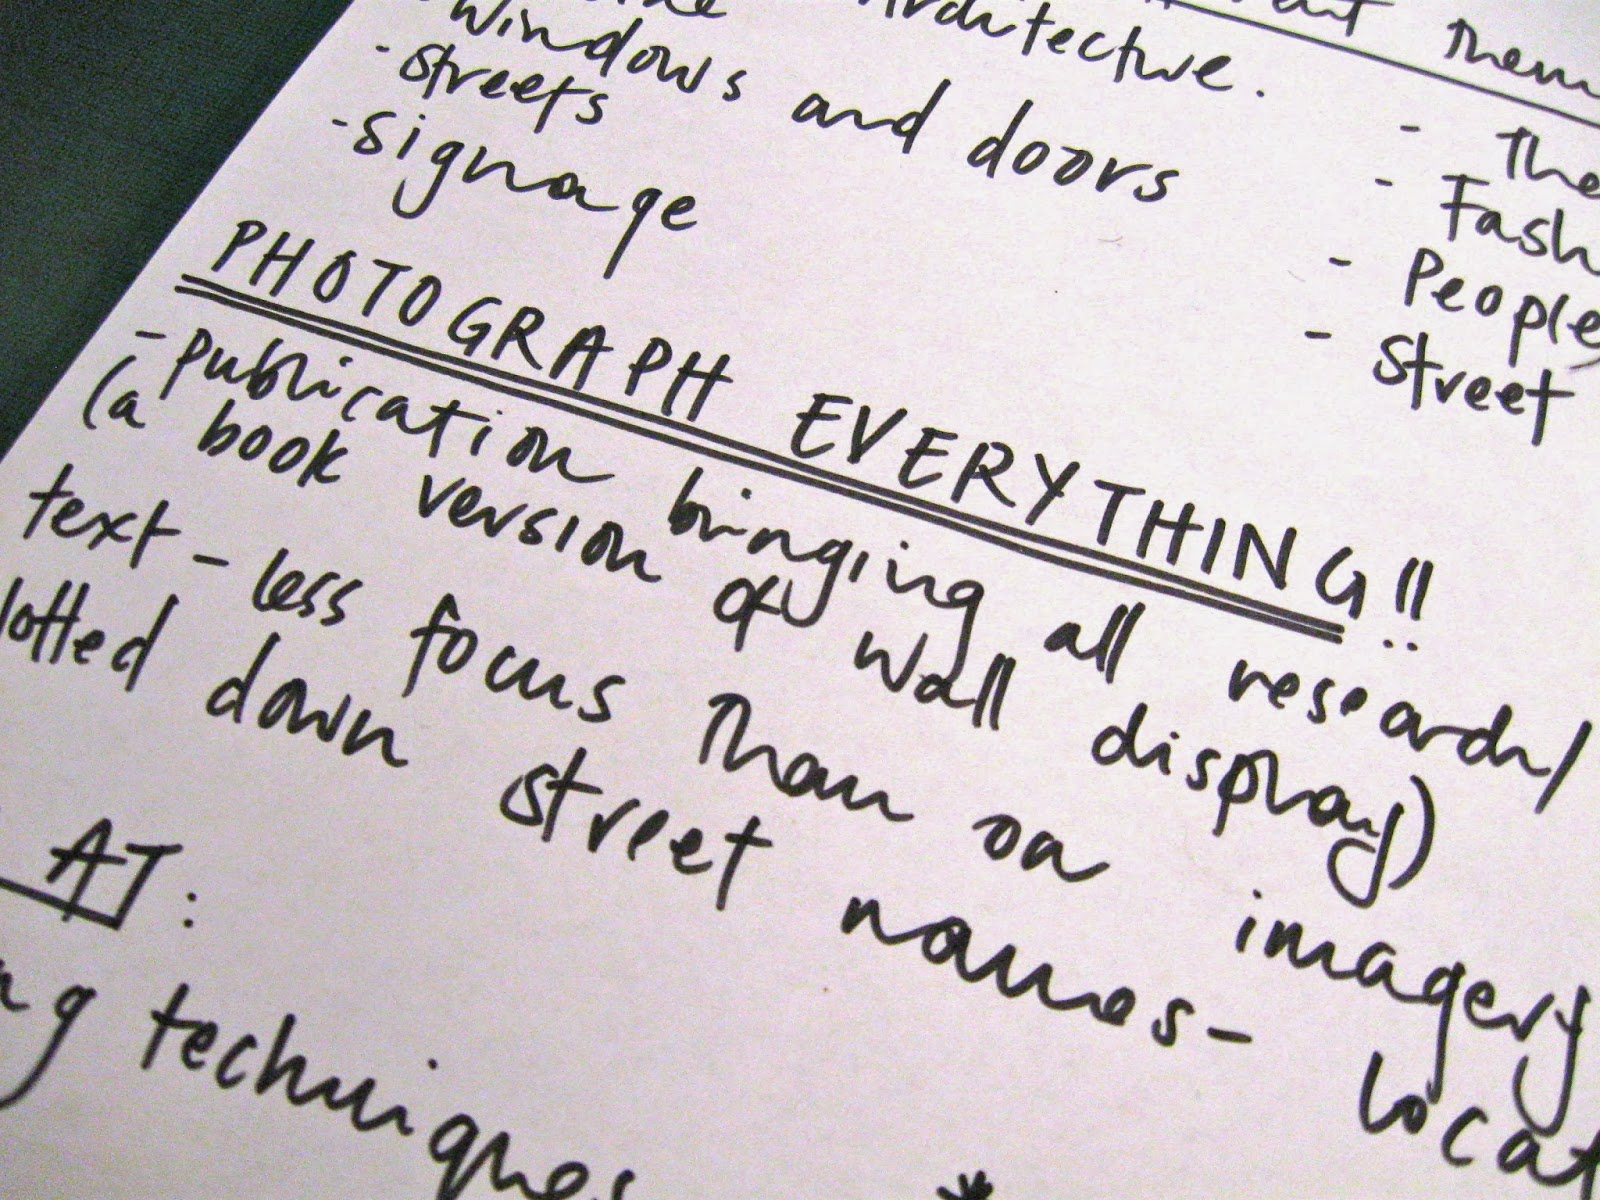 Architecture.
windows and doors
- streets
- signage
Them
- The
- Fash
- People
- Street
PHOTOGRAPH EVERYTHING!!
- publication bringing all research/
(a book version of wall display)
text - less focus than on imagery
lotted down street names - locat
AT:
ng techniques
*